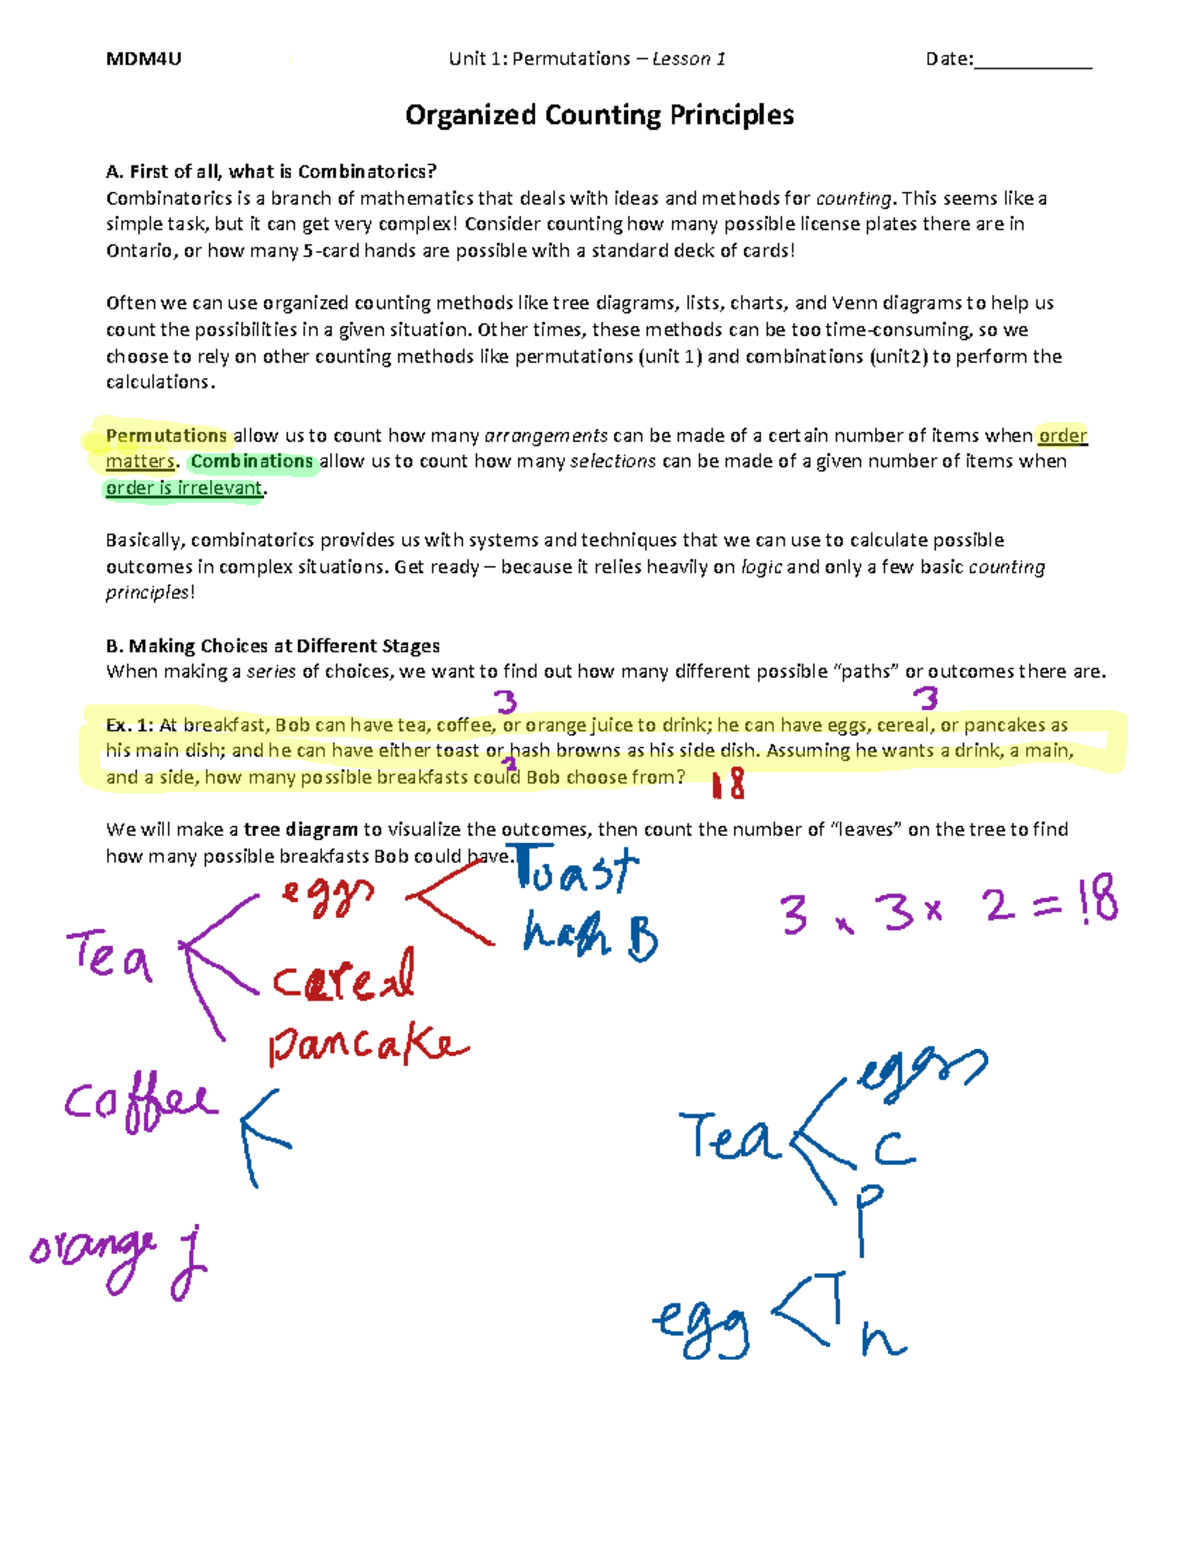 MDM4U Unit 1: Permutations – Lesson 1 Date:___________
Organized Counting Principles
A. First of all, what is Combinatorics?
Combinatorics is a branch of mathematics that deals with ideas and methods for counting. This seems like a
simple task, but it can get very complex! Consider counting how many possible license plates there are in
Ontario, or how many 5-card hands are possible with a standard deck of cards!
Often we can use organized counting methods like tree diagrams, lists, charts, and Venn diagrams to help us
count the possibilities in a given situation. Other times, these methods can be too time-consuming, so we
choose to rely on other counting methods like permutations (unit 1) and combinations (unit2) to perform the
calculations.
Permutations allow us to count how many arrangements can be made of a certain number of items when order
matters. Combinations allow us to count how many selections can be made of a given number of items when
order is irrelevant.
Basically, combinatorics provides us with systems and techniques that we can use to calculate possible
outcomes in complex situations. Get ready – because it relies heavily on logic and only a few basic counting
principles!
B. Making Choices at Different Stages
When making a series of choices, we want to find out how many different possible “paths” or outcomes there are.
3 3
Ex. 1: At breakfast, Bob can have tea, coffee, or orange juice to drink; he can have eggs, cereal, or pancakes as
his main dish; and he can have either toast or hash browns as his side dish. Assuming he wants a drink, a main,
2
and a side, how many possible breakfasts could Bob choose from? 18
We will make a tree diagram to visualize the outcomes, then count the number of “leaves” on the tree to find
how many possible breakfasts Bob could have.
Toast
eggs
3 x 3 x 2 = 18
hash B
Tea
cereal
pancake
coffee
eggs
Tea
C
P
orange j
T
egg
h